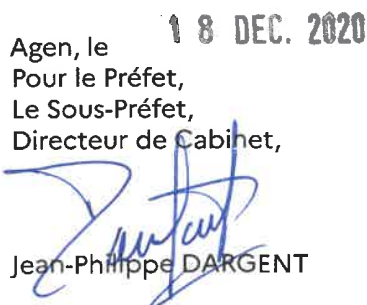 Agen, le 18 DEC. 2020
Pour le Préfet,
Le Sous-Préfet,
Directeur de Cabinet,
Jean-Philippe DARGENT